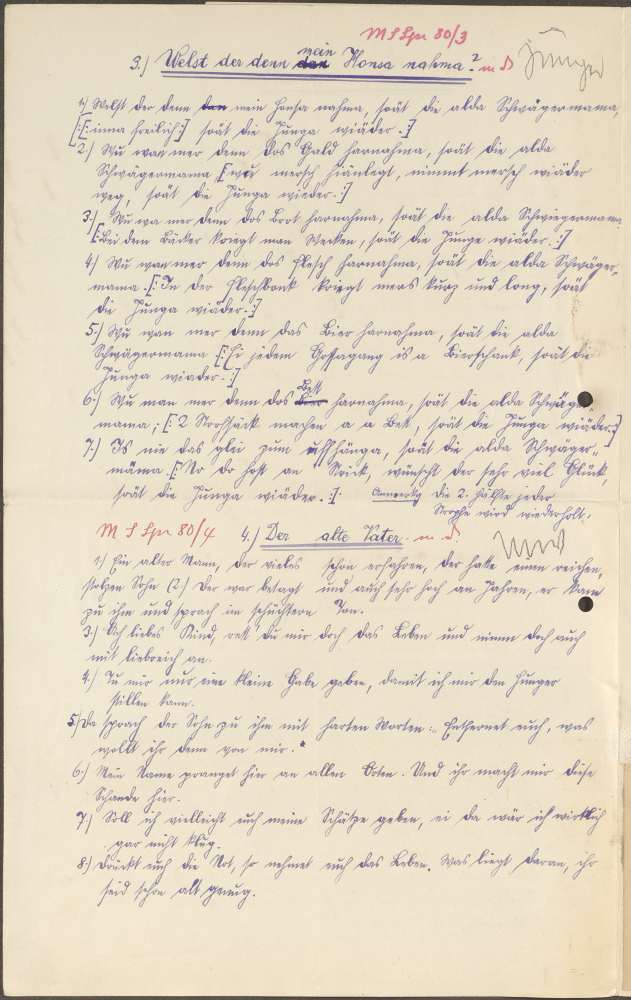 M S Spr 80/3
3.) Welst der denn den mein Honsa nahma? m. d.
1.) Welst der denn den mein Honsa nahma, soat die alda Schwägermama,
[: inna freilich :] soat die Junga wiäder. :]
2.) Wu wan mer denn dos Gald harnahma, soat die alda
Schwägermama [: wu mersch hiänlegt, nimmt mersch wiäder
weg, soat die Junga wieder. :]
3.) Wu wa mer denn dos Brot harnahma, soat die alda Schwiegermama
[: Bei dem Bäcker kriegt man Wecken, soat die Junge wiäder. :]
4.) Wu wan mer denn dos Flesch harnahma, soat die alda Schwäger-
mama. [: In der Fleschbonk kriegt mers kurz und long, soat
die Junga wiäder. :]
5.) Wu wan mer denn das Bier harnahma, soat die alda
Schwägermama [: Ei jedem Gossagang is a Bierschank, soat die
Junga wiader. :]
6.) Wu wan mer denn dos Bier Bett harnahma, soat die alda Schwäger
mama; [: 2 Strohsäck machen a a Bet, soat die Junga wiäder. :]
7.) Is nie das glei zum uffhänga, soat die alda Schwäger-
mäma [: No do host an Strick, wünscht der sehr viel Glück,
soat die Junga wiäder. :] Anmerkg. Die 2. Hälfte jeder
Strophe wird wiederholt.
M S Spr 80/4 4.) Der alte Vater. m. d.
1.) Ein alter Mann, der vieles schon erfahren, der hatte einen reichen,
stolzen Sohn (2.) Der war betagt und auch sehr hoch an Jahren, er kam
zu ihm und sprach im schüchtern Ton.
3.) Ach liebes Kind, rett du mir doch das Leben und nimm doch auch
mit liebreich an.
4.) Tu mir nur eine kleine Gabe geben, damit ich mir den Hunger
stillen kann.
5.) Da sprach der Sohn zu ihm mit harten Worten: Entfernet euch, was
wollt ihr denn von mir.
6.) Mein Name pranget hier an allen Orten. Und ihr macht mir diese
Schande hier.
7.) Soll ich vielleicht euch meine Schätze geben, ei da wär ich wirklich
gar nicht klug.
8.) Drückt euch die Not, so nehmet euch das Leben. Was liegt daran, ihr
seid schon alt genug.